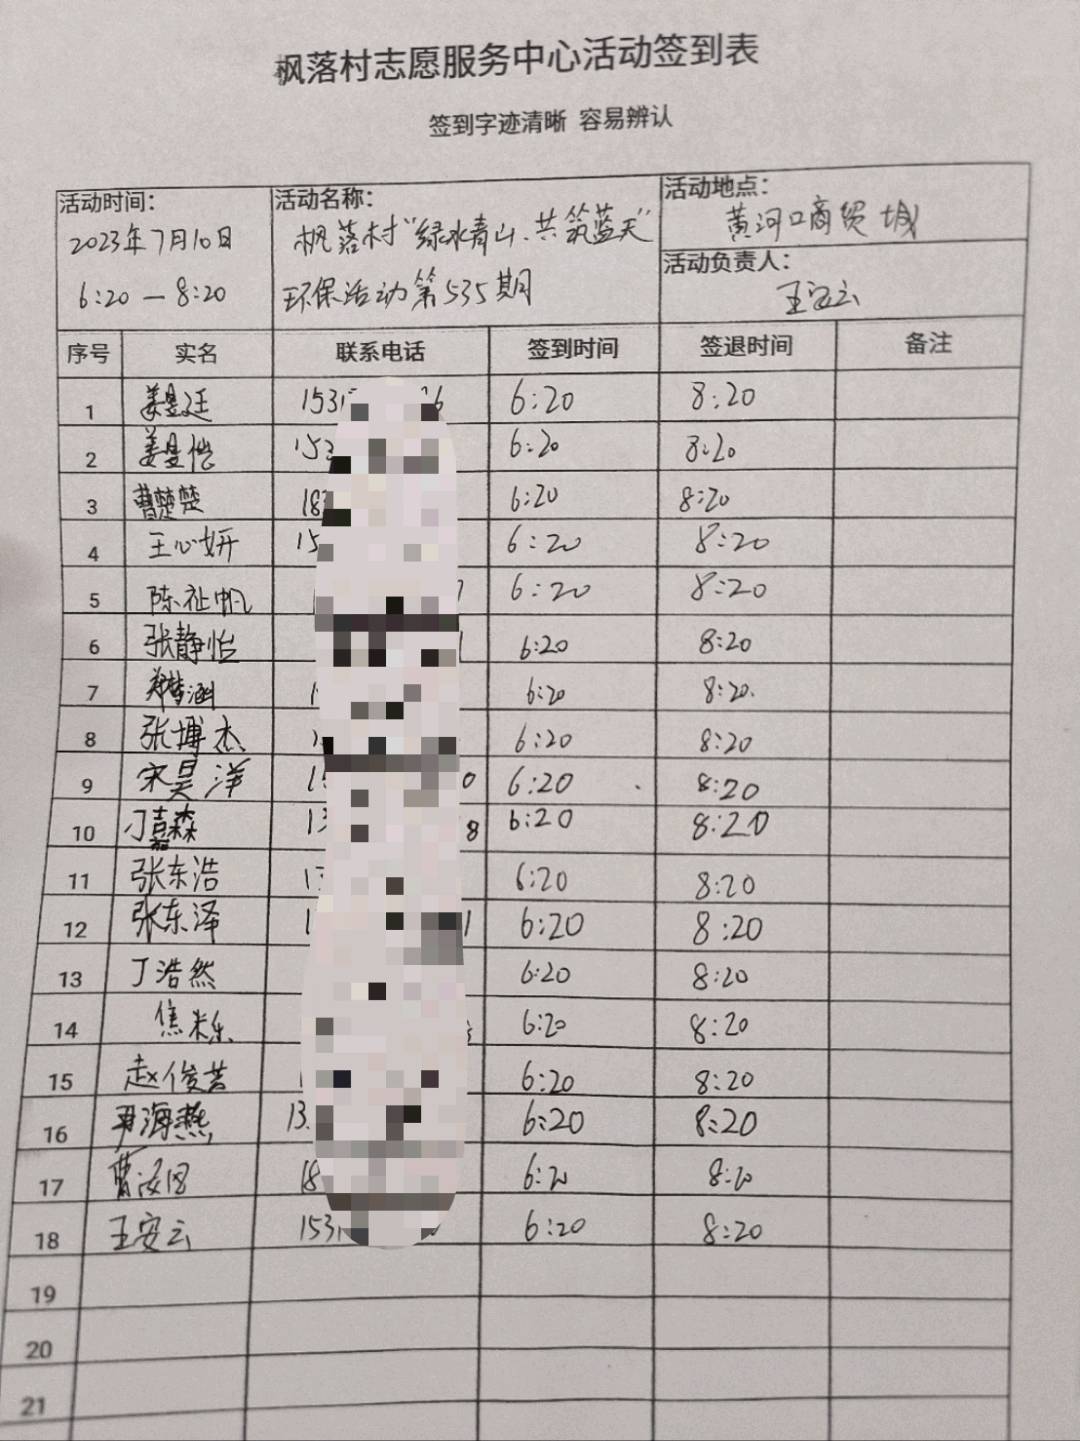 枫落村志愿服务中心活动签到表
签到字迹清晰 容易辨认
活动时间：
2023年7月10日
6:20 — 8:20
活动名称：
枫落村“绿水青山、共筑蓝天”
环保活动第535期
活动地点：
黄河口商贸城
活动负责人：
王安云
序号 实名 联系电话 签到时间 签退时间 备注
1 姜昱廷 153 6:20 8:20
2 姜昱恺 153 6:20 8:20
3 曹楚楚 18 6:20 8:20
4 王心妍 15 6:20 8:20
5 陈祉帆 6:20 8:20
6 张静怡 6:20 8:20
7 6:20 8:20
8 张博杰 6:20 8:20
9 宋昊洋 15 0 6:20 8:20
10 丁嘉森 13 8 6:20 8:20
11 张东浩 13 6:20 8:20
12 张东泽 1 1 6:20 8:20
13 丁浩然 6:20 8:20
14 焦 6:20 8:20
15 赵俊 6:20 8:20
16 尹海燕 13 6:20 8:20
17 曹 18 6:20 8:20
18 王安云 153 6:20 8:20
19
20
21